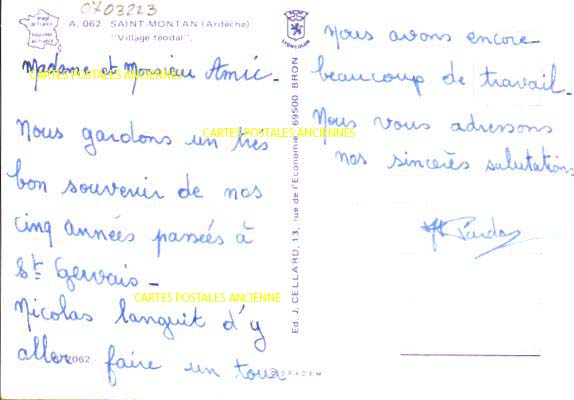 0703223
image de France
A. 062 SAINT-MONTAN (Ardèche)
"Village féodal".
Madame et Monsieur Amic.
CARTES POSTALES ANCIENNES
Nous gardons un très
CARTES POSTALES ANCIENNES
bon souvenir de nos
cinq années passées à
St Gervais _
CARTES POSTALES ANCIENNE
Nicolas languit d'y
aller faire un tour
062
LYONCOLOR
Ed. J. CELLARD, 13, rue de l'Economie - 69500 BRON
SPADEM
Nous avons encore
beaucoup de travail.
Nous vous adressons
nos sincères salutations